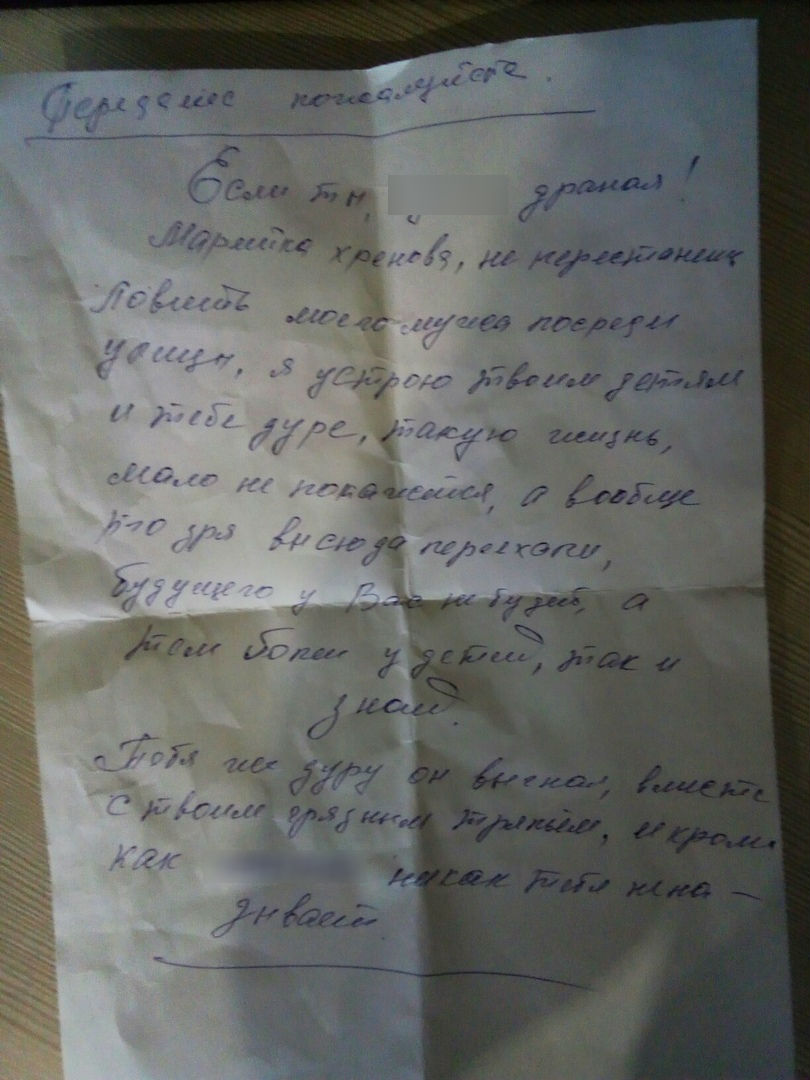 Передайте пожалуйста.
Если ты, драная!
Маритка хренова, не перестанешь
Ловить моего мужа посреди
улицы, я устрою твоим детям
и тебе дуре, такую жизнь,
мало не покажется, а вообще
это зря вы сюда переехали,
будущего у Вас не будет, а
тем более у детей, так и
знай.
Тебя же дуру он выгнал, вместе
с твоим грязным тряпьём, и кроме
как никак тебя не на-
зывает.